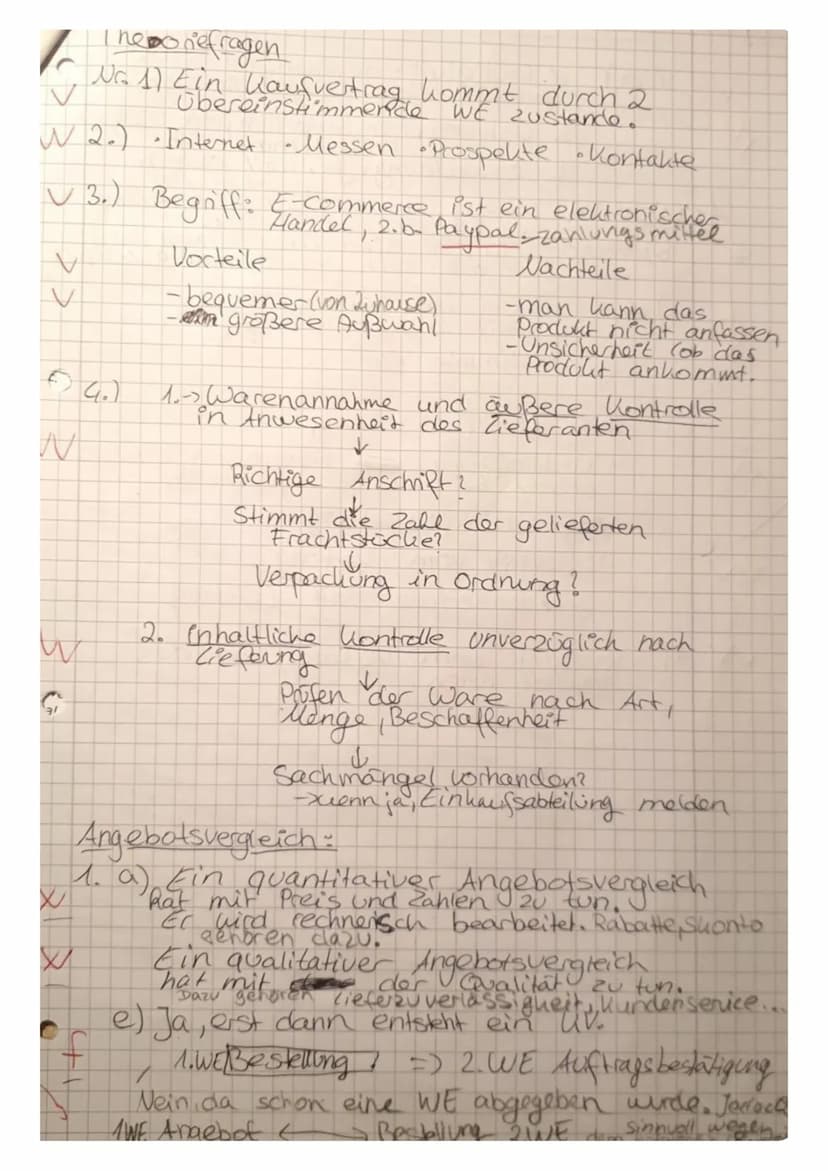 Theoriefragen
Nr. 1) Ein Kaufvertrag kommt durch 2
übereinstimmende WE zustande.
2.) · Internet · Messen · Prospekte · Kontakte
3.) Begriff: E-Commerce ist ein elektronischer
Handel, z.b. Paypal → zahlungsmittel
Vorteile Nachteile
- bequemer (von Zuhause)
- größere Außwahl
- man kann das
Produkt nicht anfassen
- Unsicherheit (ob das
Produkt ankommt.
4.) 1. → Warenannahme und äußere Kontrolle
in Anwesenheit des Lieferanten
↓
Richtige Anschrift?
↓
Stimmt die Zahl der gelieferten
Frachtstücke?
↓
Verpackung in Ordnung?
2. inhaltliche Kontrolle unverzüglich nach
Lieferung
↓
Prüfen der Ware nach Art,
Menge, Beschaffenheit
↓
Sachmängel vorhanden?
→ wenn ja, Einkaufsabteilung melden
Angebotsvergleich:
1. a) Ein quantitativer Angebotsvergleich
hat mit Preis und Zahlen zu tun.
Er wird rechnerisch bearbeitet. Rabatte, Skonto
gehören dazu.
Ein qualitativer Angebotsvergleich
hat mit der Qualität zu tun.
Dazu gehören Lieferzuverlässigkeit, Kundenservice...
e) Ja, erst dann entsteht ein KV.
1. WE Bestellung => 2. WE Auftragsbestätigung
f
Nein, da schon eine WE abgegeben wurde. Jedoch
1WE Angebot ← → Bestellung 2WE sinnvoll wegen